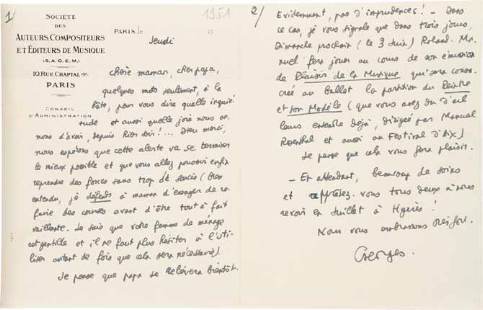 1/
SOCIÉTÉ
DES
AUTEURS COMPOSITEURS
ET ÉDITEURS DE MUSIQUE
(S.A.C.E.M.)
10, RUE CHAPTAL
PARIS
CONSEIL
D'ADMINISTRATION
PARIS
1951
Jeudi
Chère maman, cher papa,
quelques mots seulement, à la
hâte, pour vous dire quelle inquié-
tude et aussi quelle joie nous ve-
nons d'avoir, depuis hier soir! ... Dieu merci,
nous espérons que cette alerte va se terminer
le mieux possible et que vous allez pouvoir enfin
reprendre des forces sans trop de soucis (bien
entendu, je défends à maman d'essayer de re-
faire des courses avant d'être tout à fait
vaillante. Je sais que votre femme de ménage
est gentille et il ne faut plus hésiter à l'uti-
liser autant de fois que cela sera nécessaire).
Je pense que papa se relèvera bientôt.
2/
Évidemment, pas d'imprudences! - Dans
ce cas, je vous signale que dans trois jours,
Dimanche prochain (le 3 Juin) Roland Ma-
nuel fera jouer au cours de son émission
de Plaisirs de la Musique qui sera consa-
cré au Ballet la partition du Peintre
et son Modèle (que vous avez d'ail
leurs entendue déjà, dirigée par Manuel
Rosenthal et aussi au Festival d'Aix)
Je pense que cela vous fera plaisir.
- En attendant, beaucoup de soins
et apprêtez-vous tous deux à nous
revoir en Juillet à Hyères!
Nous vous embrassons bien fort.
Georges.